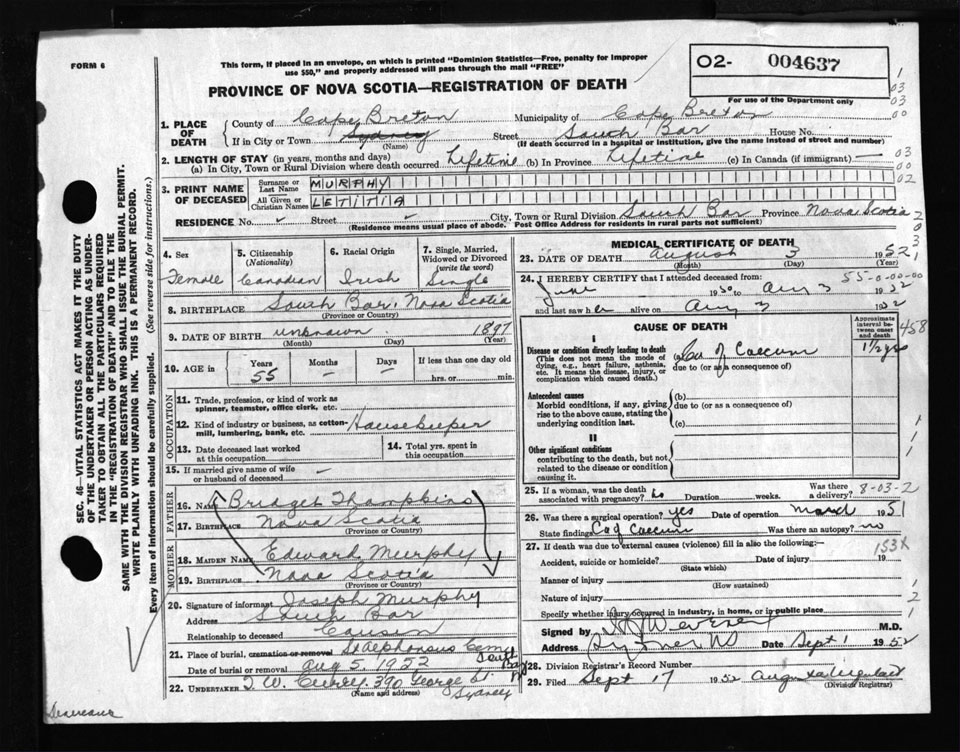 FORM 6
This form, if placed in an envelope, on which is printed "Dominion Statistics—Free, penalty for improper
use $50," and properly addressed will pass through the mail "FREE"
O2- 004637
For use of the Department only
PROVINCE OF NOVA SCOTIA—REGISTRATION OF DEATH
1. PLACE OF DEATH
County of Cape Breton Municipality of Cape Breton
If in City or Town Sydney Street South Bar House No.
(Name) (If death occurred in a hospital or institution, give the name instead of street and number)
2. LENGTH OF STAY (in years, months and days)
(a) In City, Town or Rural Division where death occurred Lifetime (b) In Province Lifetime (c) In Canada (if immigrant) —
3. PRINT NAME OF DECEASED
Surname or Last Name MURPHY
All Given or Christian Names LETITIA
RESIDENCE No. Street City, Town or Rural Division South Bar Province Nova Scotia
(Residence means usual place of abode. Post Office Address for residents in rural parts not sufficient)
4. Sex
Female
5. Citizenship
(Nationality)
Canadian
6. Racial Origin
Irish
7. Single, Married,
Widowed or Divorced
(write the word)
Single
8. BIRTHPLACE South Bar, Nova Scotia
(Province or Country)
9. DATE OF BIRTH unknown 1897
(Month) (Day) (Year)
10. AGE in
Years
55
Months
—
Days
—
If less than one day old
hrs. or min.
OCCUPATION
11. Trade, profession, or kind of work as
spinner, teamster, office clerk, etc.
12. Kind of industry or business, as cotton-
mill, lumbering, bank, etc. Housekeeper
13. Date deceased last worked
at this occupation
14. Total yrs. spent in
this occupation
15. If married give name of wife
or husband of deceased —
FATHER
16. Name Bridget Thompkins
17. Birthplace Nova Scotia
(Province or Country)
MOTHER
18. MAIDEN NAME Edward Murphy
19. BIRTHPLACE Nova Scotia
(Province or Country)
20. Signature of informant Joseph Murphy
Address South Bar
Relationship to deceased Cousin
21. Place of burial, cremation or removal St Alphonsus Cem. South Bar
Date of burial or removal Aug 5, 1952
22. UNDERTAKER T. W. Curry, 390 George St
(Name and address) Sydney
MEDICAL CERTIFICATE OF DEATH
23. DATE OF DEATH August 3 1952
(Month) (Day) (Year)
24. I HEREBY CERTIFY that I attended deceased from:
55-0-00-00
June 1950 to Aug 3 1952
and last saw her alive on Aug 3 1952
CAUSE OF DEATH
Approximate interval between onset and death
458
I
Disease or condition directly leading to death (a) Ca of Caecum 1 1/2 yrs
(This does not mean the mode of due to (or as a consequence of)
dying, e.g., heart failure, asthenia,
etc. It means the disease, injury, or
complication which caused death.)
Antecedent causes (b)
Morbid conditions, if any, giving due to (or as a consequence of)
rise to the above cause, stating the
underlying condition last. (c)
II
Other significant conditions
contributing to the death, but not
related to the disease or condition
causing it.
25. If a woman, was the death
associated with pregnancy? no Duration weeks. Was there
a delivery?
8-03-2
26. Was there a surgical operation? yes Date of operation March 1951
State findings Ca of Caecum Was there an autopsy? no
27. If death was due to external causes (violence) fill in also the following:—
153X
Accident, suicide or homicide? Date of injury 19
(State which)
Manner of injury
(How sustained)
Nature of injury
Specify whether injury occurred in industry, in home, or in public place
Signed by M.D.
Address Sydney NS Date Sept 1 1952
28. Division Registrar's Record Number
29. Filed Sept 17 1952
(Division Registrar)
SEC. 46—VITAL STATISTICS ACT MAKES IT THE DUTY
OF THE UNDERTAKER OR PERSON ACTING AS UNDER-
TAKER TO OBTAIN ALL THE PARTICULARS REQUIRED
IN THE "REGISTRATION OF DEATH" AND TO FILE THE
SAME WITH THE DIVISION REGISTRAR WHO SHALL ISSUE THE BURIAL PERMIT.
WRITE PLAINLY WITH UNFADING INK. THIS IS A PERMANENT RECORD.
Every item of information should be carefully supplied. (See reverse side for instructions.)